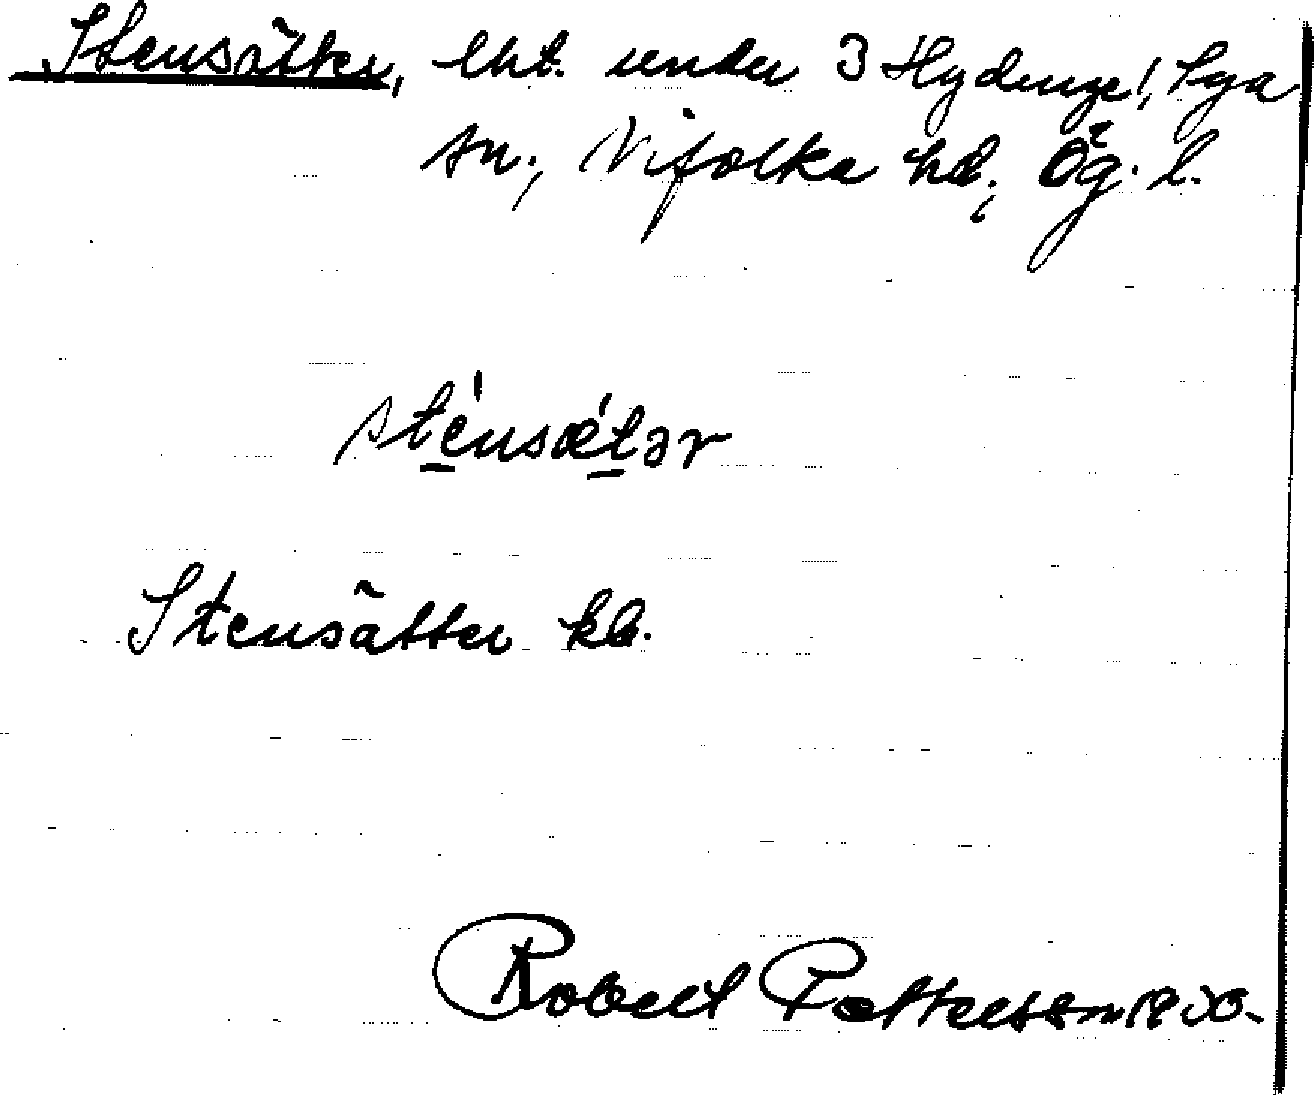 Stensätter, lht. under 3 Hydinge!, Sya
sn., Vifolka hd., Ög. l.
sténsǽtər
Stensätter kb.
Robert Pettersson